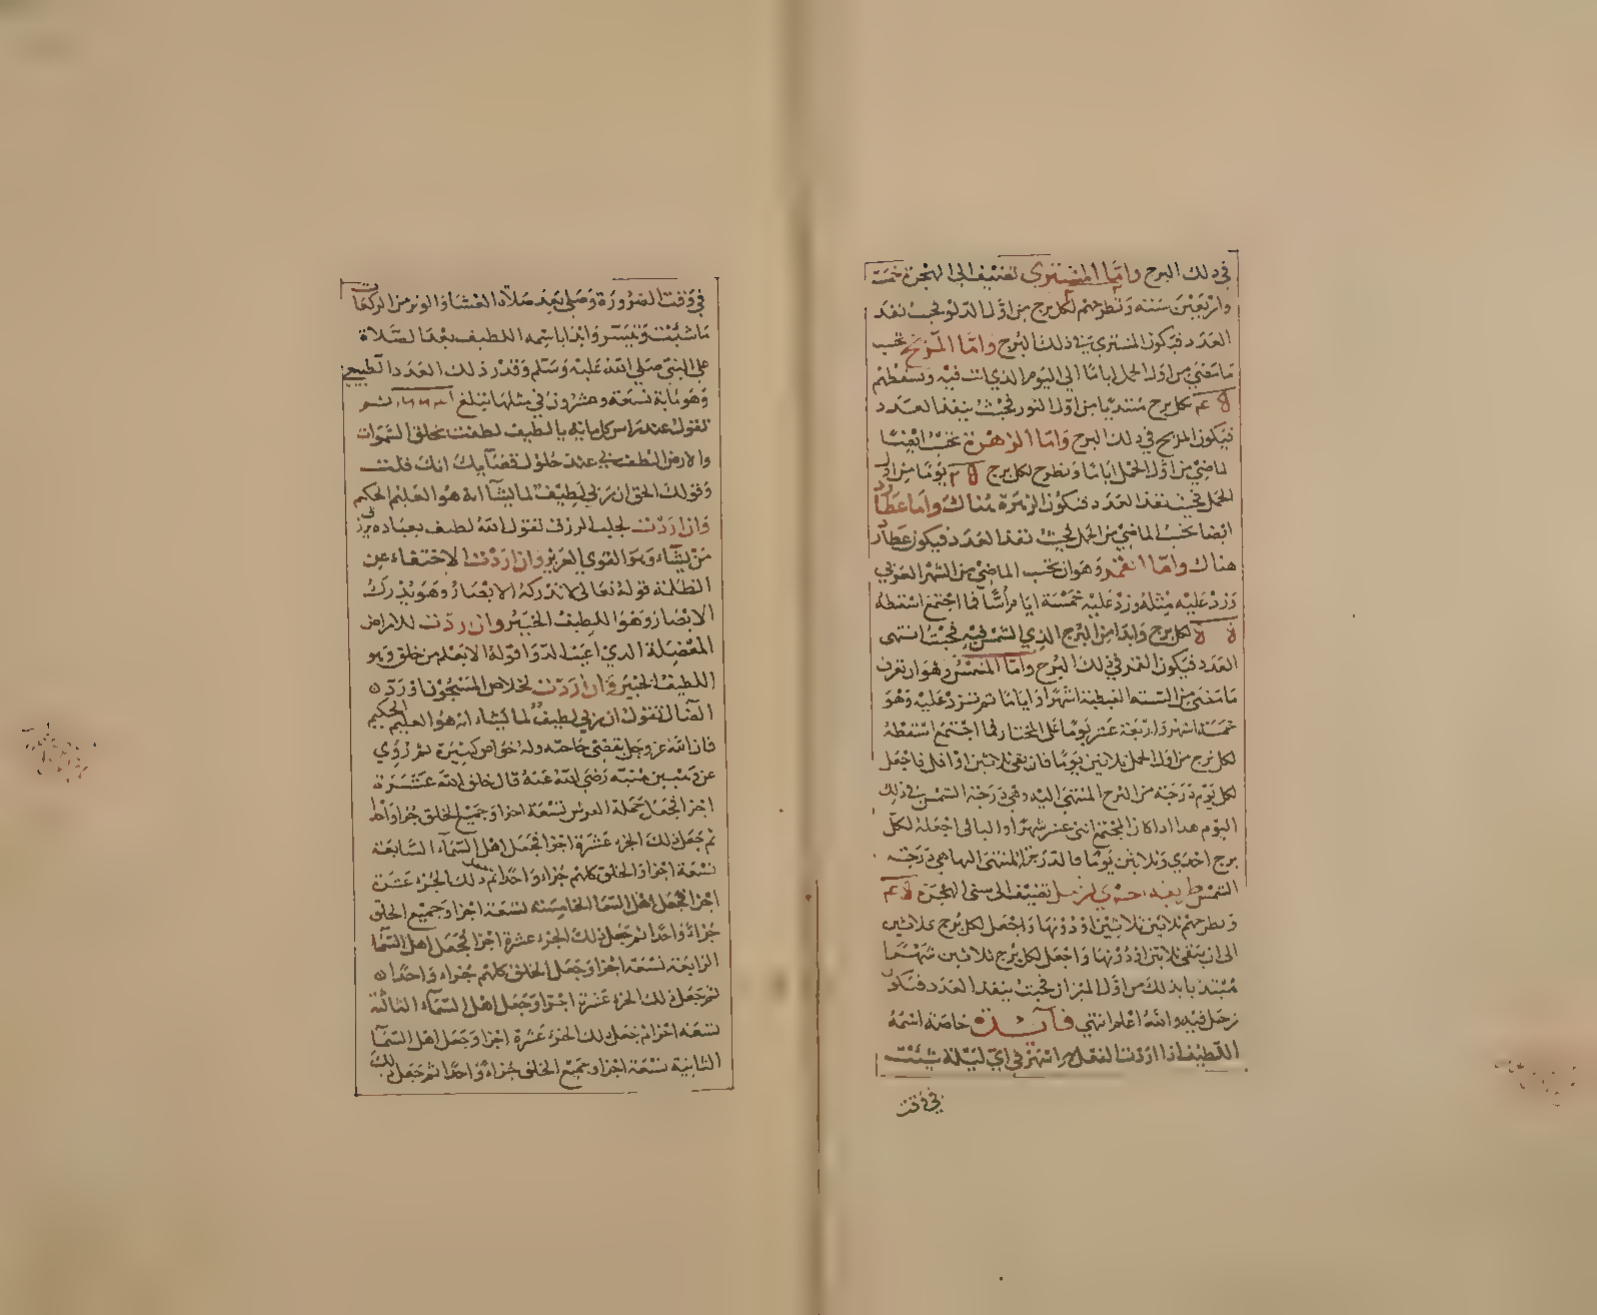 في ذلك البرج واما المشتري تضيف الي الهجرة خمسة
واربعين سنة وتطرحهم لكل برج من اول الدلو فحيث نفد
العدد فيكون المشتري في ذلك البرج واما المريخ تحسب
ما مضي من اول الحمل اياما الي اليوم الذي انت فيه وتسقطهم
لكل برج مبتديا من اول الثور فحيث ينفد العدد
فيكون المريخ في ذلك البرج واما الزهرة تحسب ايضا
الماضي من اول الحمل اياما وتطرح لكل برج يوما من اول
الحمل فحيث نفد العدد فتكون الزهرة هناك واما عطارد
ايضا تحسب الماضي من الحمل فحيث نفد العدد فيكون عطارد
هناك واما القمر وهو ان تحسب الماضي من الشهر العربي
وزد عليه مثله وزد عليه خمسة ايام فما اجتمع اسقطه
لكل برج وابدا من البرج الذي الشمس فيه فحيث انتهى
العدد فيكون القمر في ذلك البرج واما الشمس وهو ان تعرف
ما مضي من السنة القبطية اشهرا واياما ثم تزد عليه وهو
خمسة اشهر واربعة عشر يوما على المختار فما اجتمع اسقطه
لكل برج من اول الحمل ثلاثين يوما فان بقي ثلاثين او اقل فاجعل
لكل يوم درجة من البرج المنتهى اليه وهي درجة الشمس في ذلك
اليوم هذا اذا كان المجتمع اثني عشر شهرا والباقي اجعله لكل
برج احدي وثلاثين يوما فالدرجة المنتهى اليها هي درجة
الشمس زحل تضيف الي سني الهجرة
وتطرحهم ثلاثين ثلاثين او دونها واجعل لكل برج ثلاثين
الي ان يبقى ثلاثين او دونها واجعل لكل برج ثلاثين شهرا
مبتديا بذلك من اول الميزان فحيث ينفد العدد فيكون
زحل فيه والله اعلم انتهي فائدة خاصة اسمه
اللطيف اذا اردت في اي ليلة شئت
في وقت
في وقت الضرورة وصلي بعد صلاة العشاء والوتر من الركعات
ما شئت وتيسر وابدا باسمه اللطيف بعد الصلاة
على النبي صلي الله عليه وسلم وقدر ذلك العدد الطبيعي
وهو ماية تسعة وعشرون في مثلها تبلغ ١٦٦٤١ ثم
تقول عند راس كل ماية يا لطيف لطفت بخلق السموات
والارض الطف بي عند حلول قضايك انك قلت
وقولك الحق ان ربي لطيف لما يشا انه هو العليم الحكيم
وان اردت لجلب الرزق تقول الله لطيف بعباده يرزق
من يشاء وهو القوي العزيز وان اردت لاختفاء عن
الظلمة قوله تعالى لا تدركه الابصار وهو يدرك
الابصار وهو اللطيف الخبير وان اردت للامراض
المعضلة الذي اعيت الدوا قوله الا يعلم من خلق وهو
اللطيف الخبير وان اردت لخلاص المسجون او رد
الضالة تقول ان ربي لطيف لما يشاء انه هو العليم الحكيم
فان الله عز وجل يقضي حاجته وله خواص كثيرة ثم روي
عن وهب بن منبه رضي الله عنه قال خلق الله عشرة
اجزا فجعل حملة العرش تسعة اجزا وجميع الخلق جزا واحدا
ثم جعل ذلك الجزء عشرة اجزا فجعل اهل السماء السابعة
تسعة اجزا والخلق كلهم جزاء واحدا ثم جعل ذلك الجزء عشرة
اجزا فجعل اهل السما الخامسة تسعة اجزا وجميع الخلق
جزاء واحدا ثم جعل ذلك الجزء عشرة اجزا فجعل اهل السما
الرابعة تسعة اجزا وجعل الخلق كلهم جزاء واحدا
ثم جعل ذلك الجزء عشرة اجزا وجعل اهل السماء الثالثة
تسعة اجزا ثم جعل ذلك الجزء عشرة اجزا وجعل اهل السما
الثانية تسعة اجزا وجميع الخلق جزاء واحدا ثم جعل ذلك